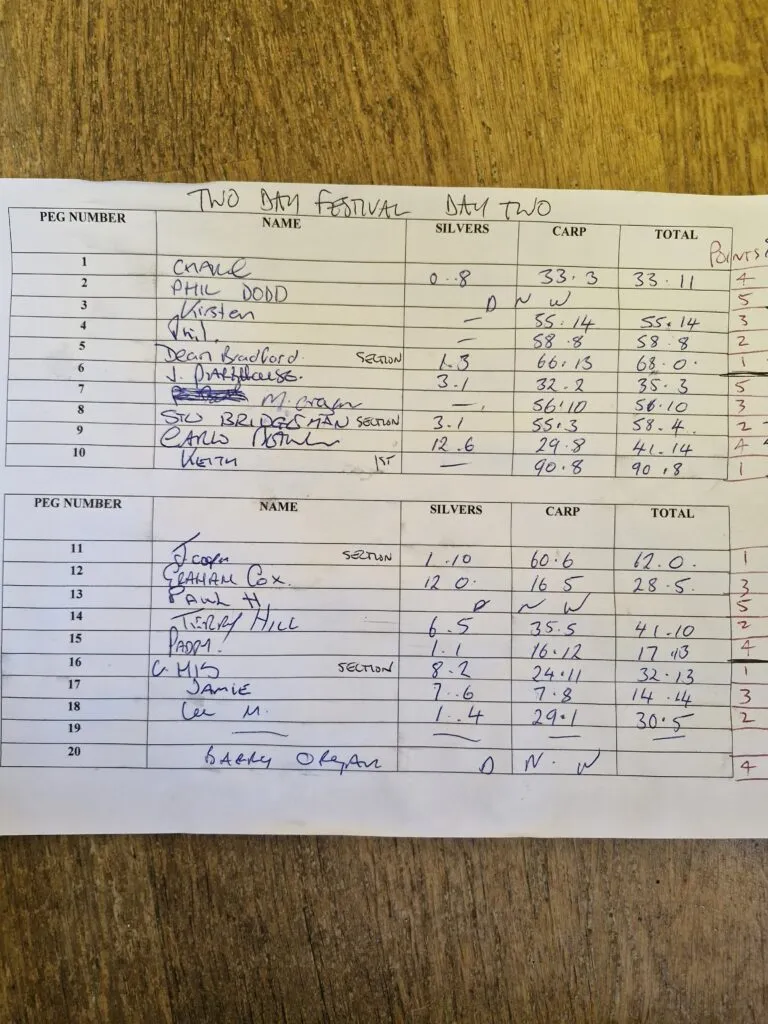 TWO DAY FESTIVAL DAY TWO
PEG NUMBER NAME SILVERS CARP TOTAL POINTS
1 0..8 33.3 33.11 4
2 PHIL DODD D N W 5
3 Kirsten — 55.14 55.14 3
4 Phil. — 58.8 58.8 2
5 Dean Bradford. SECTION 1.3 66.13 68.0. 1
6 J. 3.1 32.2 35.3 5
7 M. —. 56.10 56.10 3
8 STU BRIDGEMAN SECTION 3.1 55.3 58.4. 2
9 CARLO 12.6 29.8 41.14 4
10 KEITH 1ST — 90.8 90.8 1
PEG NUMBER NAME SILVERS CARP TOTAL
11 J coopr SECTION 1.10 60.6 62.0. 1
12 GRAHAM COX. 12 0. 16 5 28.5. 3
13 PAUL H D N W 5
14 TERRY HILL 6.5 35.5 41.10 2
15 PADDY. 1.1 16.12 17.13 4
16 CHRIS SECTION 8.2 24.11 32.13 1
17 JAMIE 7..6 7.8 14.14 3
18 Lee M. 1..4 29.1 30.5 2
19 — — — —
20 BARRY ORGAN D N. W 4